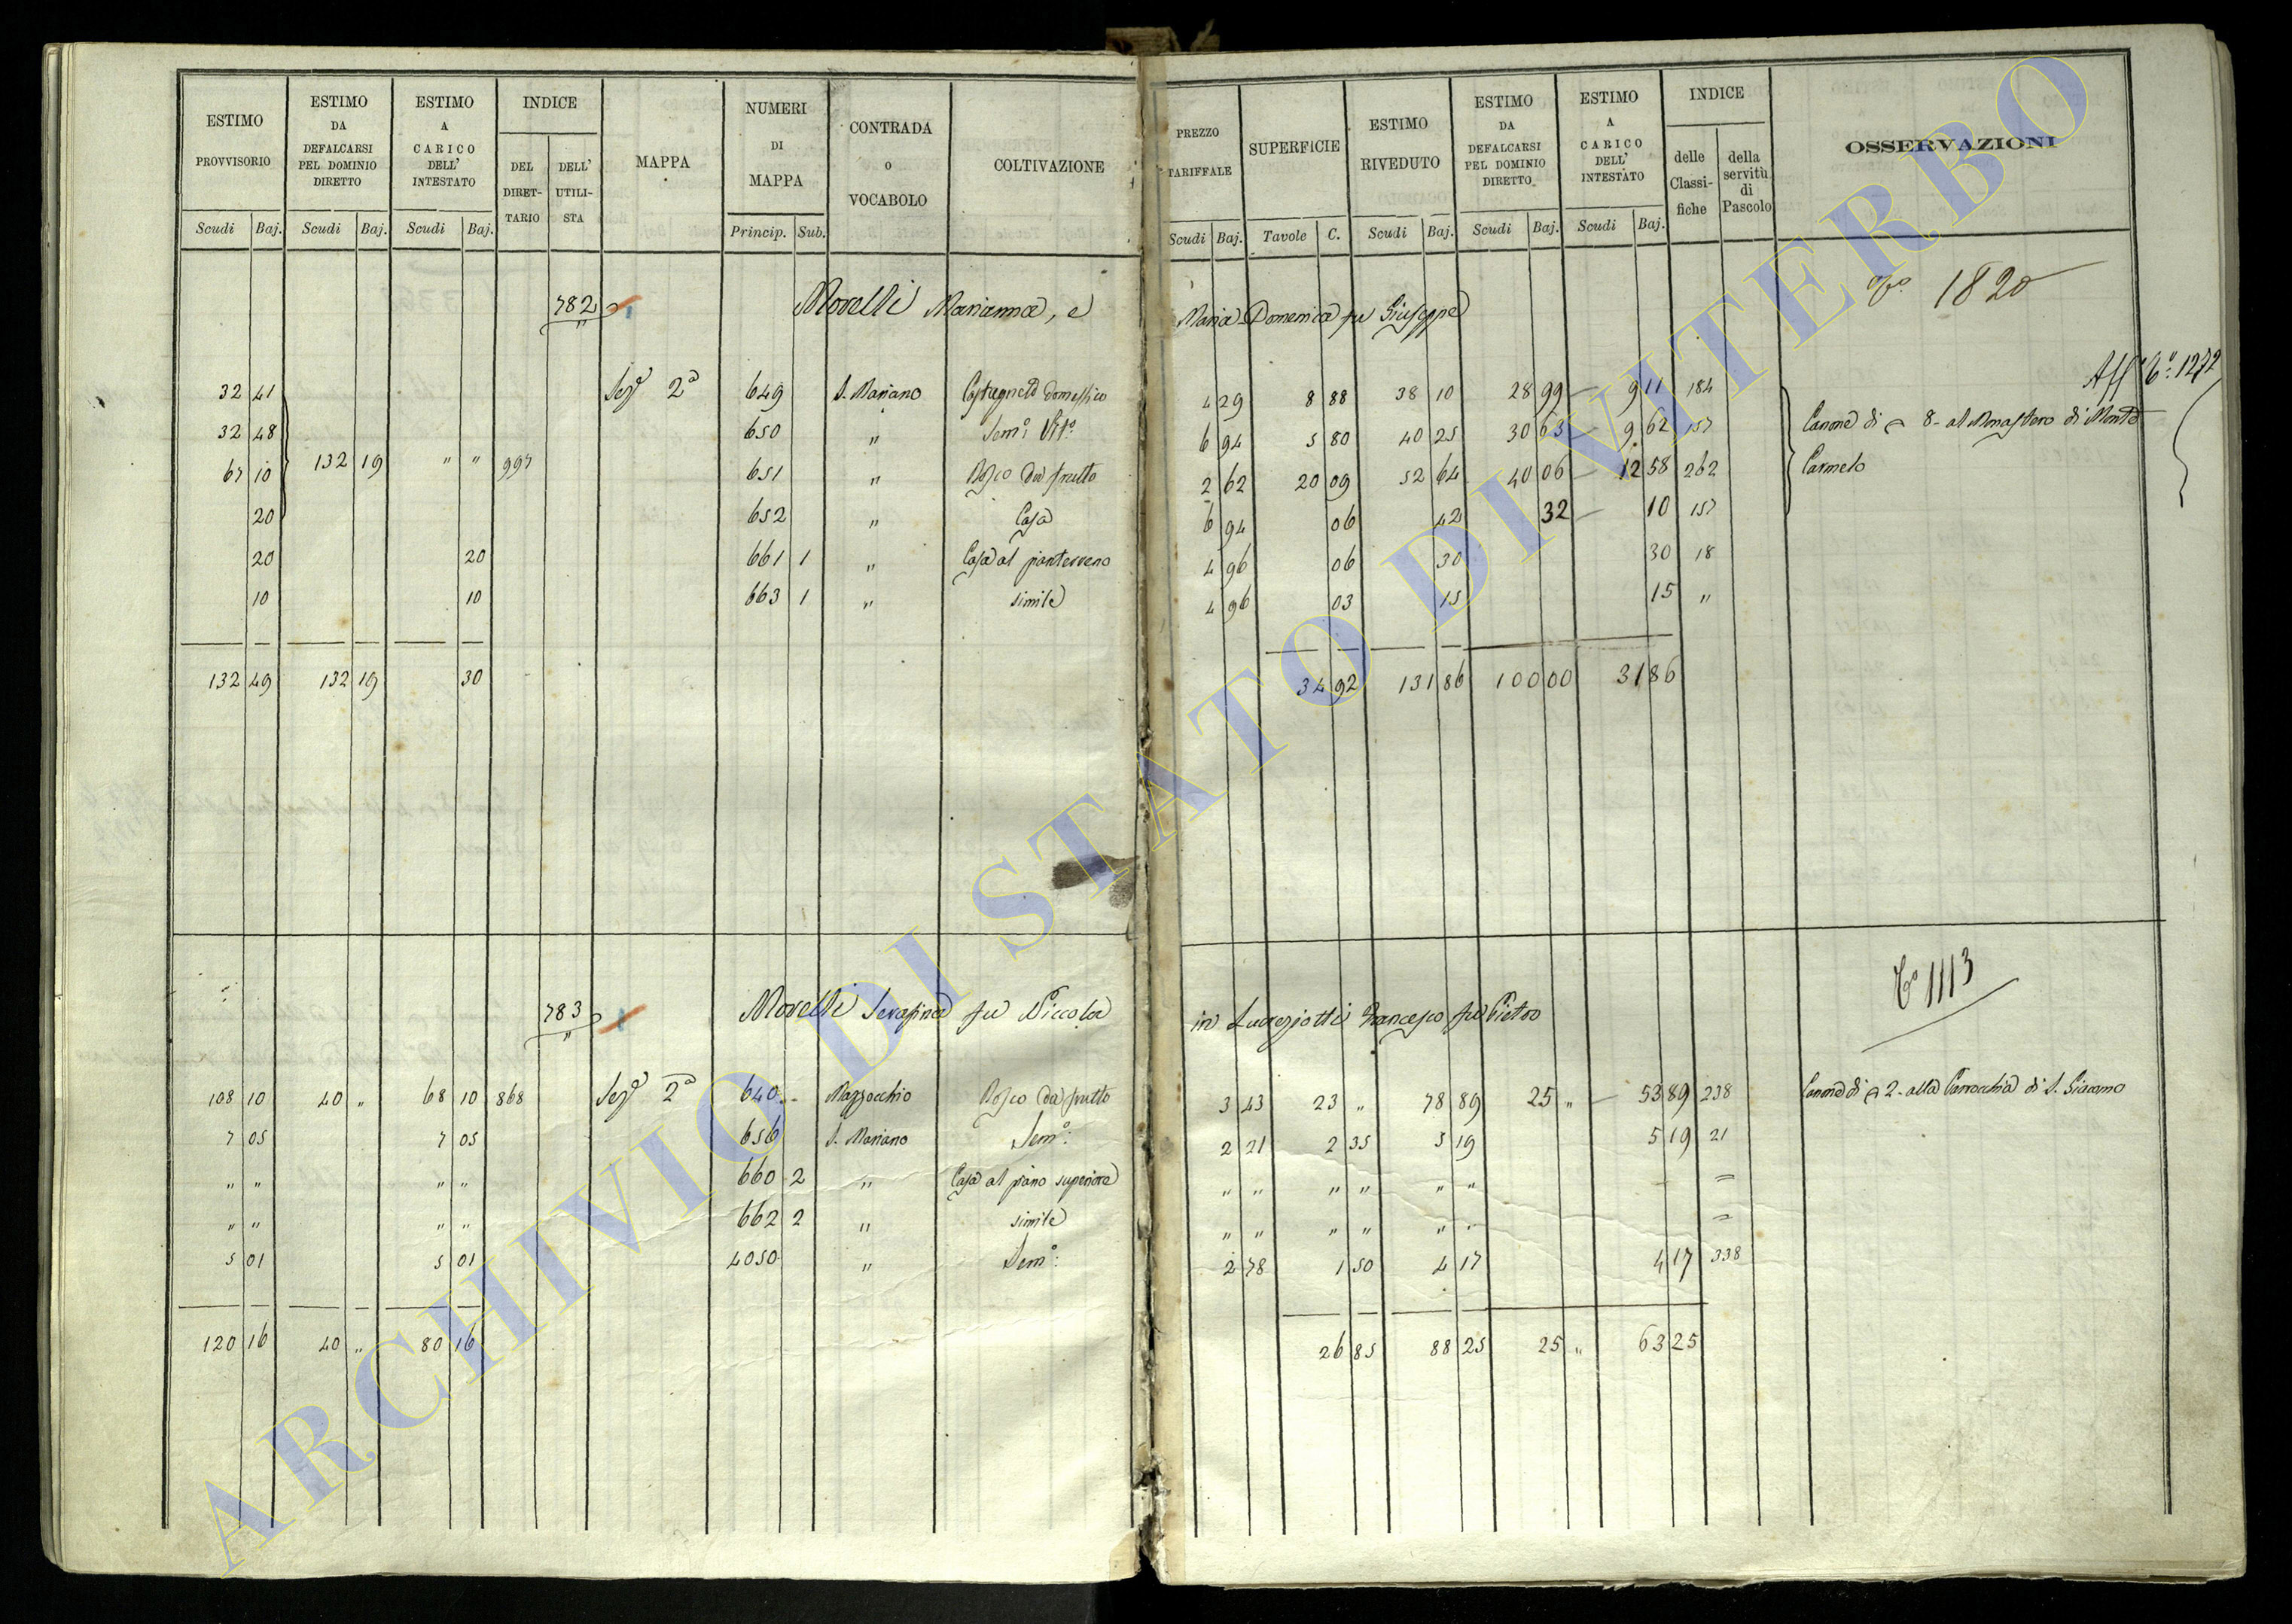 ESTIMO PROVVISORIO | ESTIMO DA DEFALCARSI PEL DOMINIO DIRETTO | ESTIMO A CARICO DELL' INTESTATO | INDICE | MAPPA | NUMERI DI MAPPA | CONTRADA o VOCABOLO | COLTIVAZIONE | PREZZO TARIFFALE | SUPERFICIE | ESTIMO RIVEDUTO | ESTIMO DA DEFALCARSI PEL DOMINIO DIRETTO | ESTIMO A CARICO DELL' INTESTATO | INDICE | OSSERVAZIONI
DEL DIRET-TARIO | DELL' UTILI-STA | delle Classi-fiche | della servitù di Pascolo
Scudi | Baj. | Scudi | Baj. | Scudi | Baj. | Princip. | Sub. | Scudi | Baj. | Tavole | C. | Scudi | Baj. | Scudi | Baj. | Scudi | Baj.
782 Morelli Marianna, e Maria Domenica fu Giuseppe 1820
Aff. 1272
32 41 Sez.e 2a 649 S. Mariano Castagneto domestico 4 29 8 88 38 10 28 99 9 11 184
32 48 650 " Sem.o Vit.o 6 94 5 80 40 25 30 63 9 62 157 Canone di 8 - al Monastero di Monte
67 10 132 19 " " 997 651 " Bosco da frutto 2 62 20 09 52 64 40 06 12 58 262 Carmelo
20 652 " Casa 6 94 06 42 32 10 157
20 20 661 1 " Casa al pianterreno 4 96 06 30 30 18
10 10 663 1 " simile 4 96 03 15 15 "
132 49 132 19 30 34 92 131 86 100 00 31 86
783 Morelli Serafina fu Niccola in Lucreziotti Francesco fu Pietro 1113
108 10 40 " 68 10 868 Sez.e 2a 640 Mazzocchio Bosco da frutto 3 43 23 " 78 89 25 " 53 89 238 Canone di 2 - alla Parrocchia di S. Giacomo
7 05 7 05 656 S. Mariano Sem.o: 2 21 2 35 5 19 5 19 21
" " " " 660 2 " Casa al piano superiore " " " " " " =
" " " " 662 2 " simile " " " " " " =
5 01 5 01 4050 " Sem.o: 2 78 1 50 4 17 4 17 338
120 16 40 " 80 16 26 85 88 25 25 " 63 25
ARCHIVIO DI STATO DI VITERBO